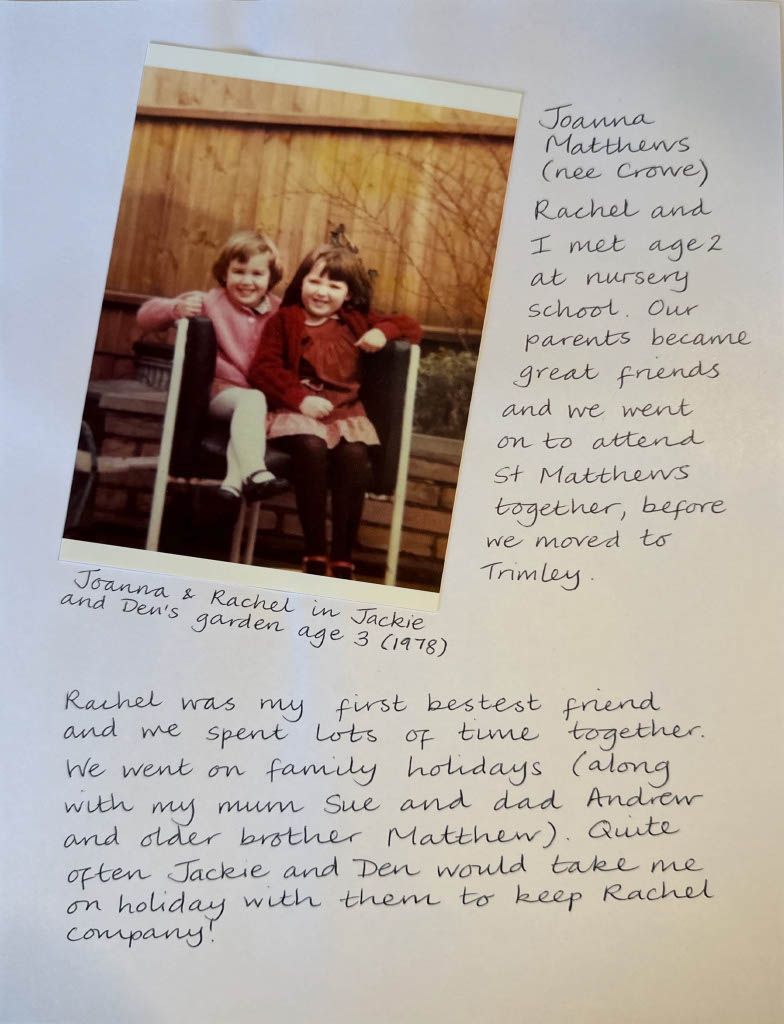 Joanna
Matthews
(nee Crowe)
Rachel and
I met age 2
at nursery
school. Our
parents became
great friends
and we went
on to attend
St Matthews
together, before
we moved to
Trimley.
Joanna & Rachel in Jackie
and Den's garden age 3 (1978)
Rachel was my first bestest friend
and we spent lots of time together.
We went on family holidays (along
with my mum Sue and dad Andrew
and older brother Matthew). Quite
often Jackie and Den would take me
on holiday with them to keep Rachel
company!